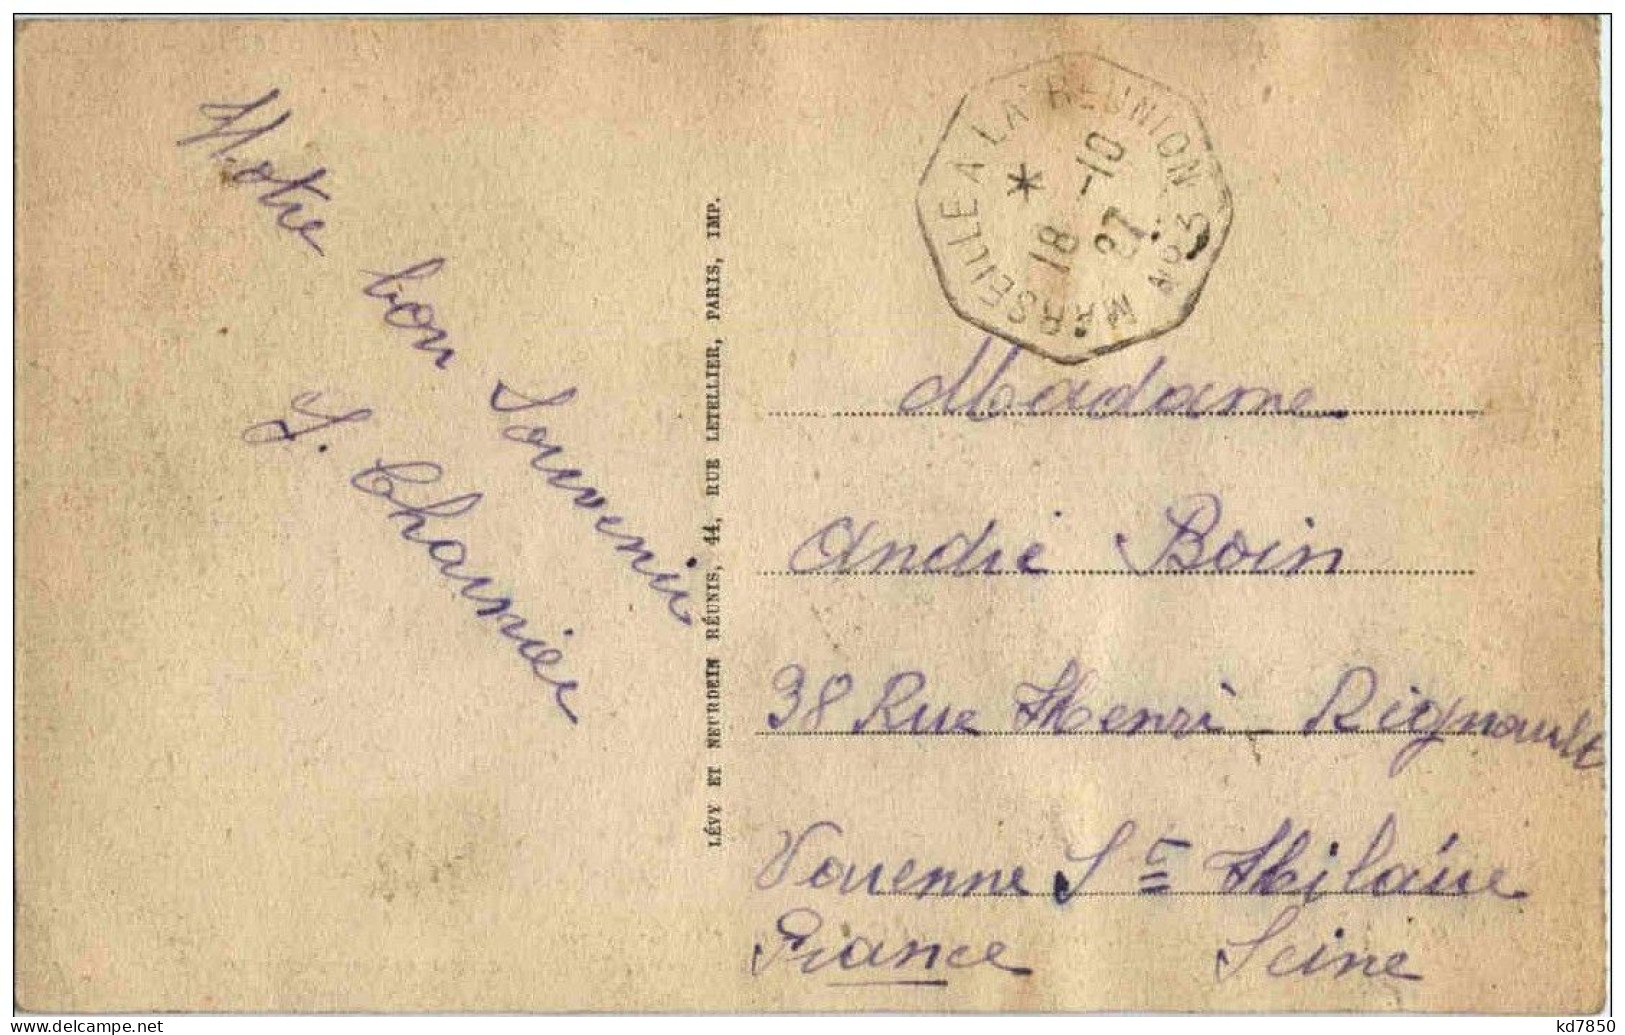 Notre bon Souvenir
J. Charnier
LÉVY ET NEURDEIN RÉUNIS, 44, RUE LETELLIER, PARIS, IMP.
MARSEILLE A LA REUNION Nº3
*
18 -10
27
Madame
André Boin
38 Rue Henri Rignault
Varenne St Hilaire
France Seine
www.delcampe.net
kd7850